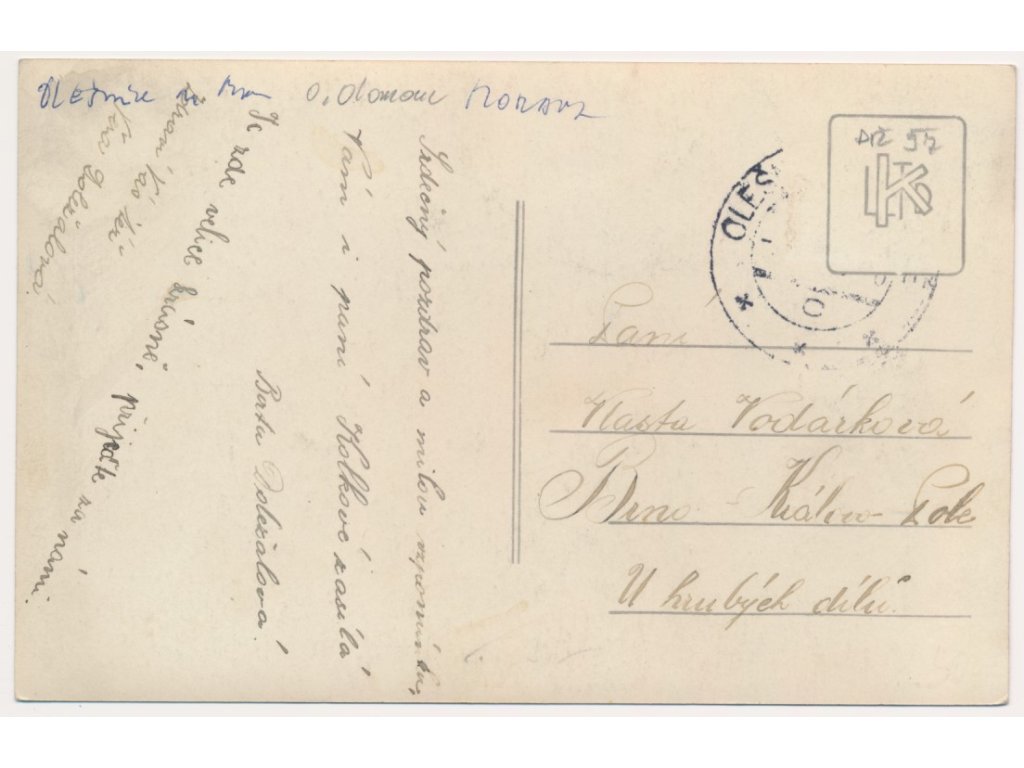 Olešnice na Mor. o. domov MORAVA
Srdečný pozdrav a milou vzpomínku,
Vám i paní Kolkové zasílá
Berta Doležalová.
Je zde velice krásně, přijeďte za námi.
zdraví Vás též
Doležalová
Paní
Vlasta Vodárková
Brno – Králov. Pole
U hrubých dílů.
OLEŠ